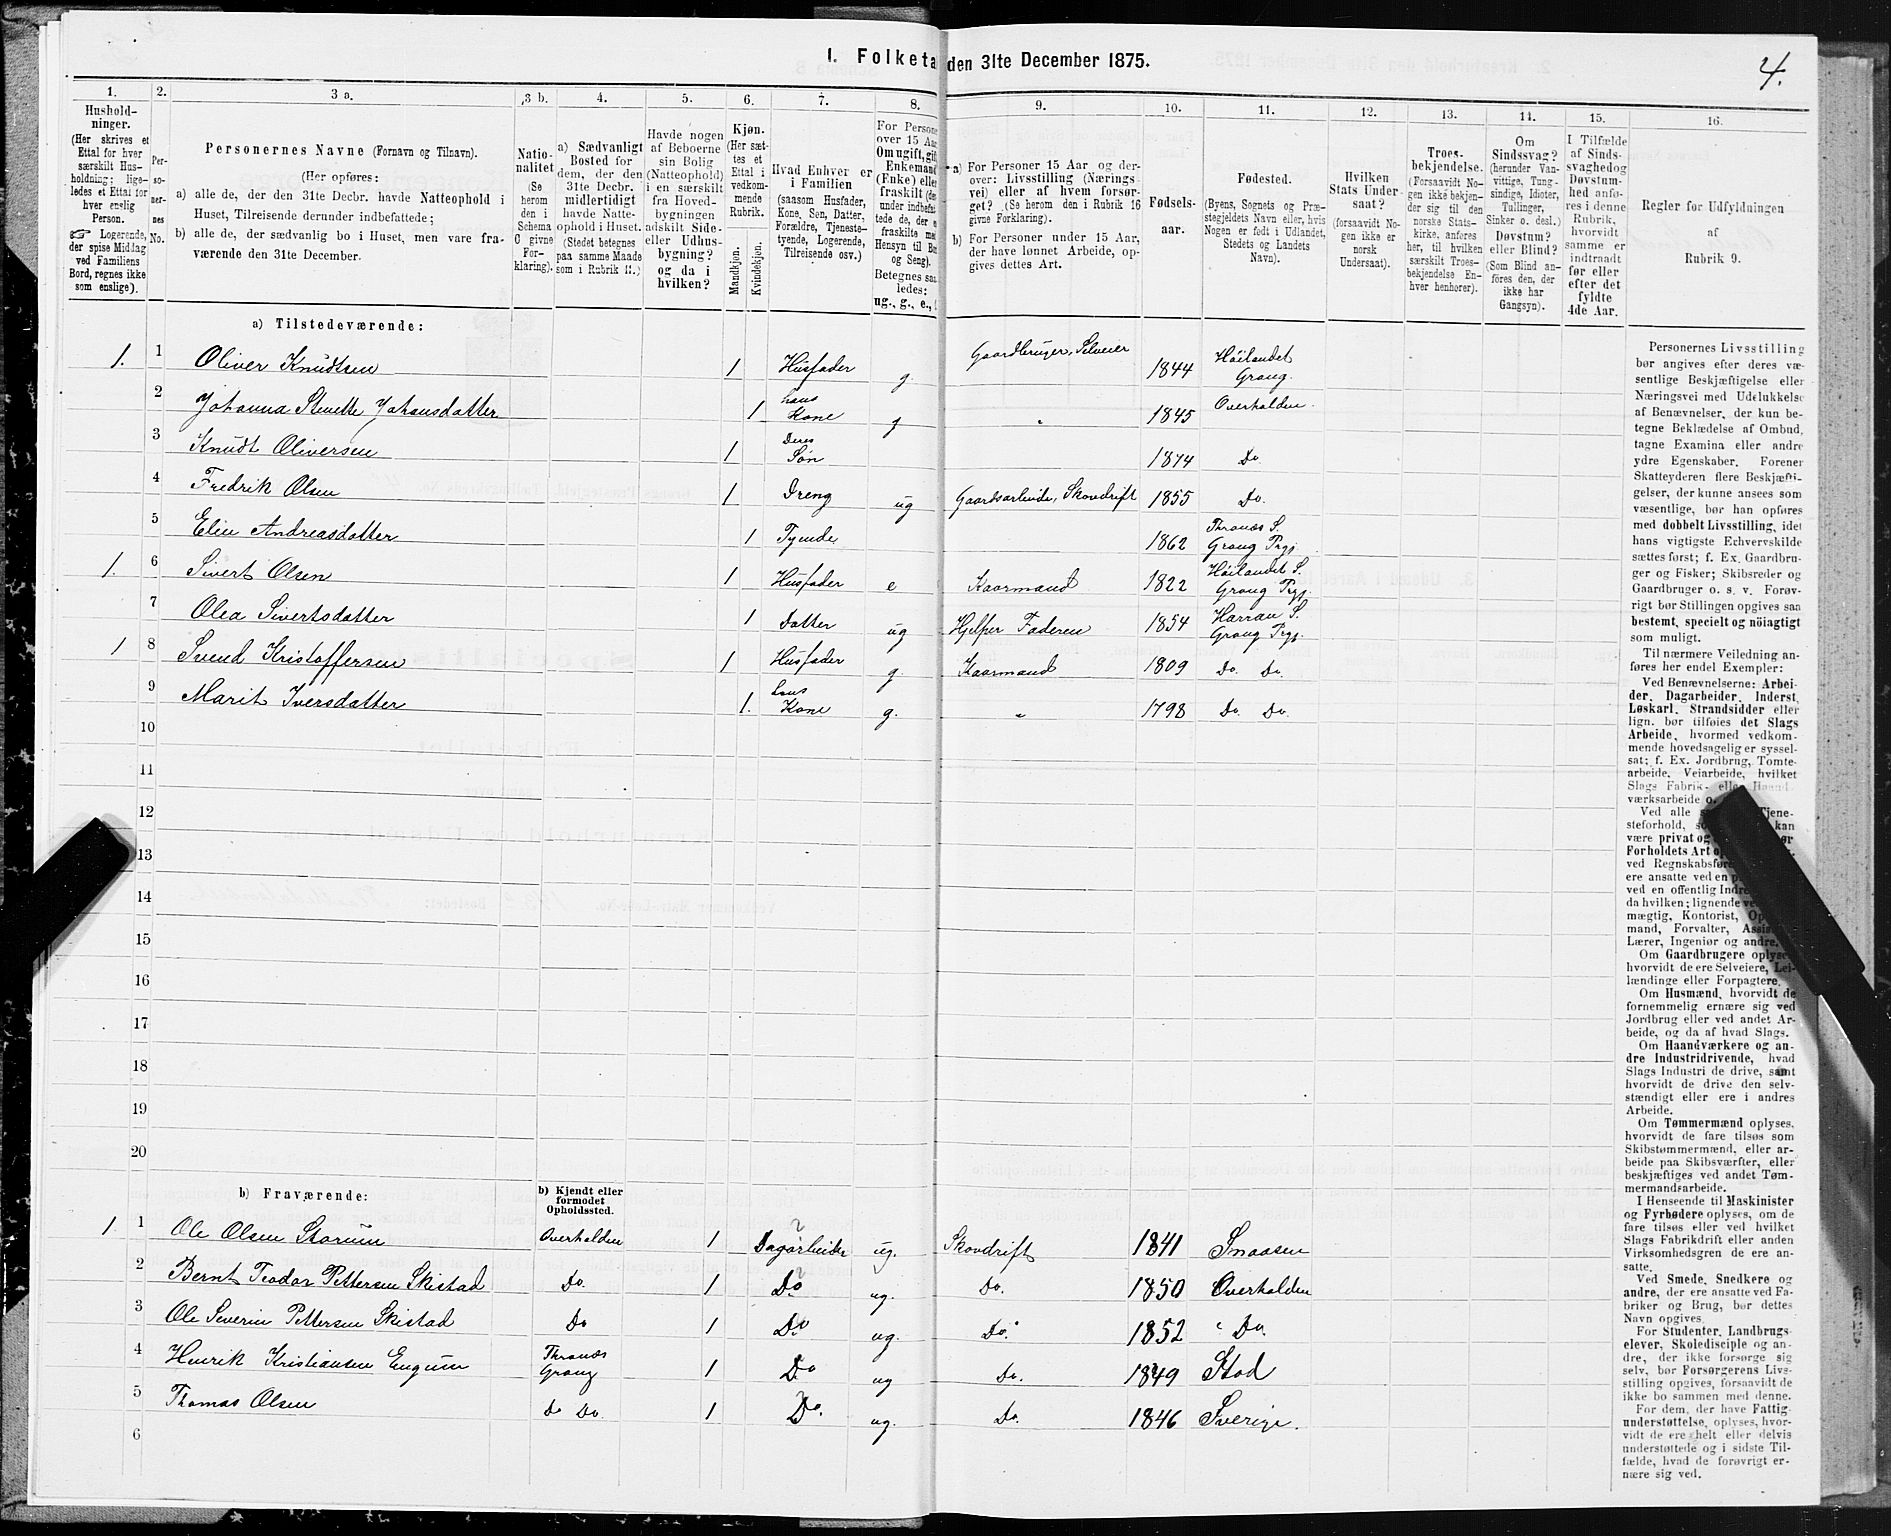 1. Folketa den 31te December 1875.
4.
1.
Hushold-
ninger.
(Her skrives et
Ettal for hver
særskilt Hus-
holdning; lige-
ledes et Ettal for
hver enslig
Person.
☞ Logerende,
der spise Middag
ved Familiens
Bord, regnes ikke
som enslige).
2.
Per-
so-
ner-
nes
No.
3 a.
Personernes Navne (Fornavn og Tilnavn).
(Her opføres:
a) alle de, der den 31te Decbr. havde Natteophold i
Huset, Tilreisende derunder indbefattede;
b) alle de, der sædvanlig bo i Huset, men vare fra-
værende den 31te December.
3 b.
Natio-
nalitet
(Se
herom
den i
Schema
C givne
For-
klaring).
4.
a) Sædvanligt
Bosted for
dem, der den
31te Decbr.
midlertidigt
havde Natte-
ophold i Huset.
(Stedet betegnes
paa samme Maade
som i Rubrik 11.)
5.
Havde nogen
af Beboerne
sin Bolig
(Natteophold)
i en særskilt
fra Hoved-
bygningen
adskilt Side-
eller Udhus-
bygning?
og da i
hvilken?
6.
Kjøn.
(Her sæt-
tes et
Ettal i
vedkom-
mende
Rubrik.
Mandkjøn.
Kvindekjøn.
7.
Hvad Enhver er
i Familien
(saasom Husfader,
Kone, Søn, Datter,
Forældre, Tjeneste-
tyende, Logerende,
Tilreisende osv.)
8.
For Persone
over 15 Aar
Om ugift, gif
Enkemand
(Enke) elle
fraskilt (de
under indbefat
tede de, der e
fraskilte me
Hensyn til Bo
og Seng).
Betegnes saa
ledes:
ug., g., e.,
9.
a) For Personer 15 Aar og der-
over: Livsstilling (Nærings-
vei) eller af hvem forsør-
get? (Se herom den i Rubrik 16
givne Forklaring).
b) For Personer under 15 Aar,
der have lønnet Arbeide, op-
gives dettes Art.
10.
Fødsels-
aar.
11.
Fødested.
(Byens, Sognets og Præ-
stegjeldets Navn eller, hvis
Nogen er født i Udlandet,
Stedets og Landets
Navn).
12.
Hvilken
Stats Under-
saat?
(forsaavidt No-
gen ikke er
norsk
Undersaat).
13.
Troes-
bekjendelse.
(Forsaavidt No-
gen ikke bekjen-
der sig til den
norske Stats-
kirke, anføres
her, til hvilken
særskilt Troes-
bekjendelse En-
hver henhører).
14.
Om
Sindssvag?
(herunder Van-
vittige, Tung-
sindige, Idioter,
Tullinger,
Sinker o. desl.)
Døvstum?
eller Blind?
(Som Blind an-
føres den, der
ikke har
Gangsyn).
15.
I Tilfælde
af Sinds-
svaghed og
Døvstum-
hed anfø-
res i denne
Rubrik,
hvorvidt
samme er
indtraadt
før eller
efter det
fyldte
4de Aar.
16.
Regler for Udfyldningen
af
Rubrik 9.
a) Tilstedeværende:
1. 1 Oliver Knudtsen 1 Husfader g. Gaardbruger, Selveier 1844 Höilandet Grong.
2 Johanna Stenette Johansdatter 1 hans Kone g " 1845 Overhalden
3 Knudt Oliversen 1 Deres Søn 1874 Do.
4 Fredrik Olsen 1 Dreng ug Gaardsarbeide, Skovdrift 1855 Do.
5 Elin Andreasdatter 1 Tyende 1862 Thranæs S. Grong Prgj.
1. 6 Sivert Olsen 1 Husfader e Kaarmand 1822 Höilandet S. Grong Prgj.
7 Olea Sivertsdatter 1 Datter ug Hjelper Faderen 1854 Harran S. Grong Prgj.
1 8 Svend Kristoffersen 1 Husfader g. Kaarmand 1809 Do. Do.
9 Marit Iversdatter 1. hans Kone g. " 1798 Do. Do.
10
11
12
13
14
15
16
17
18
19
20
b) Fraværende:
b) Kjendt eller
formodet
Opholdssted.
1. 1 Ole Olsen Storum Overhalden 1 Dagarbeider ug. Skovdrift 1841 Snaasen
2 Bernt Teodor Pettersen Skistad Do. 1 Do ug. Do. 1850 Overhalden
3 Ole Severin Pettersen Skistad Do 1 Do ug. Do. 1852 " Do.
4 Henrik Kristiansen Engum Thranæs Grong 1 Do ug Do. 1849 Stod
5 Thomas Olsen Do Do. 1 Do. ug. Do. 1846 Sverige.
6
Personernes Livsstilling
bør angives efter deres væ-
sentlige Beskjæftigelse eller
Næringsvei med Udelukkelse
af Benævnelser, der kun be-
tegne Beklædelse af Ombud,
tagne Examina eller andre
ydre Egenskaber. Forener
Skatteyderen flere Beskjæfti-
gelser, der kunne ansees som
væsentlige, bør han opføres
med dobbelt Livsstilling, idet
hans vigtigste Erhvervskilde
sættes først; f. Ex. Gaardbru-
ger og Fisker; Skibsreder og
Gaardbruger o. s. v. Forøv-
rigt bør Stillingen opgives saa
bestemt, specielt og nöiagtigt
som muligt.
Til nærmere Veiledning an-
føres her endel Exempler:
Ved Benævnelserne: Arbei-
der, Dagarbeider, Inderst,
Løskarl, Strandsidder eller
lign. bør tilføies det Slags
Arbeide, hvormed vedkom-
mende hovedsagelig er syssel-
sat; f. Ex. Jordbrug, Tomte-
arbeide, Veiarbeide, hvilket
Slags Fabrik- eller Haand-
værksarbeide o.
Ved alle Tjene-
steforhold, kan
være privat og
Forholdets Art
ved Regnskabsføre
ere ansatte ved en
ved en offentlig Indre
da hvilken; lignende ve
mægtig, Kontorist, Op
mand, Forvalter, Assis
Lærer, Ingeniør og andre.
Om Gaardbrugere oplyses,
hvorvidt de ere Selveiere, Lei-
lændinge eller Forpagtere.
Om Husmænd, hvorvidt de
fornemmelig ernære sig ved
Jordbrug eller ved andet Ar-
beide, og da af hvad Slags.
Om Haandværkere og an-
dre Industridrivende, hvad
Slags Industri de drive, samt
hvorvidt de drive den selv-
stændigt eller ere i andres
Arbeide.
Om Tømmermænd oplyses,
hvorvidt de fare tilsøs som
Skibstømmermænd, eller ar-
beide paa Skibsværfter, eller
beskjæftiges ved andet Tøm-
mermandsarbeide.
I Henseende til Maskinister
og Fyrbødere oplyses, om de
fare tilsøs eller ved hvilket
Slags Fabrikdrift eller anden
Virksomhedsgren de ere an-
satte.
Ved Smede, Snedkere og
andre, der ere ansatte ved Fa-
briker og Brug, bør dettes
Navn opgives.
For Studenter, Landbrugs-
elever, Skoledisciple og an-
dre, der ikke forsørge sig
selv, bør Forsørgerens Livs-
stilling opgives, forsaavidt de
ikke bo sammen med denne.
For dem, der have Fattig-
understøttelse, oplyses, hvor-
vidt de ere helt eller delvis
understøttede og i sidste Til-
fælde, hvad de forøvrigt er-
nære sig ved.